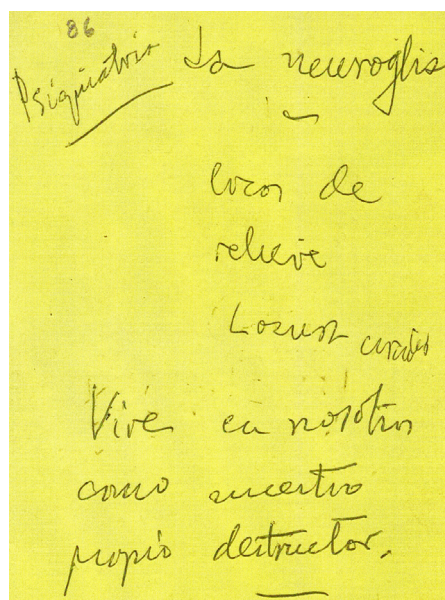 86
Psiquiatria
La neuroglia
locos de
relieve
Vive en nosotros
como nuestro
propio destructor.